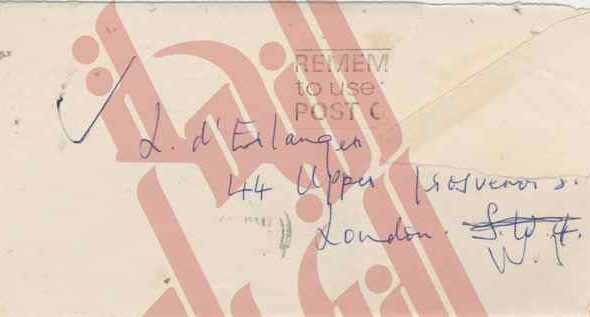 REMEM
to use
POST C
L. d'Erlanger
44 Upper Grosvenor S.
London. S.W.7.
W.1